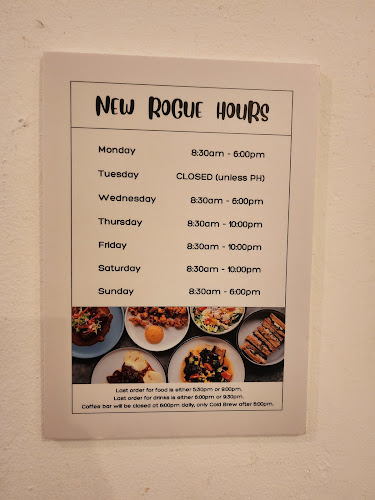 NEW ROGUE HOURS
Monday 8:30am - 6:00pm
Tuesday CLOSED (unless PH)
Wednesday 8:30am - 6:00pm
Thursday 8:30am - 10:00pm
Friday 8:30am - 10:00pm
Saturday 8:30am - 10:00pm
Sunday 8:30am - 6:00pm
Last order for food is either 5:30pm or 9:00pm.
Last order for drinks is either 6:00pm or 9:30pm.
Coffee bar will be closed at 6:00pm daily, only Cold Brew after 6:00pm.